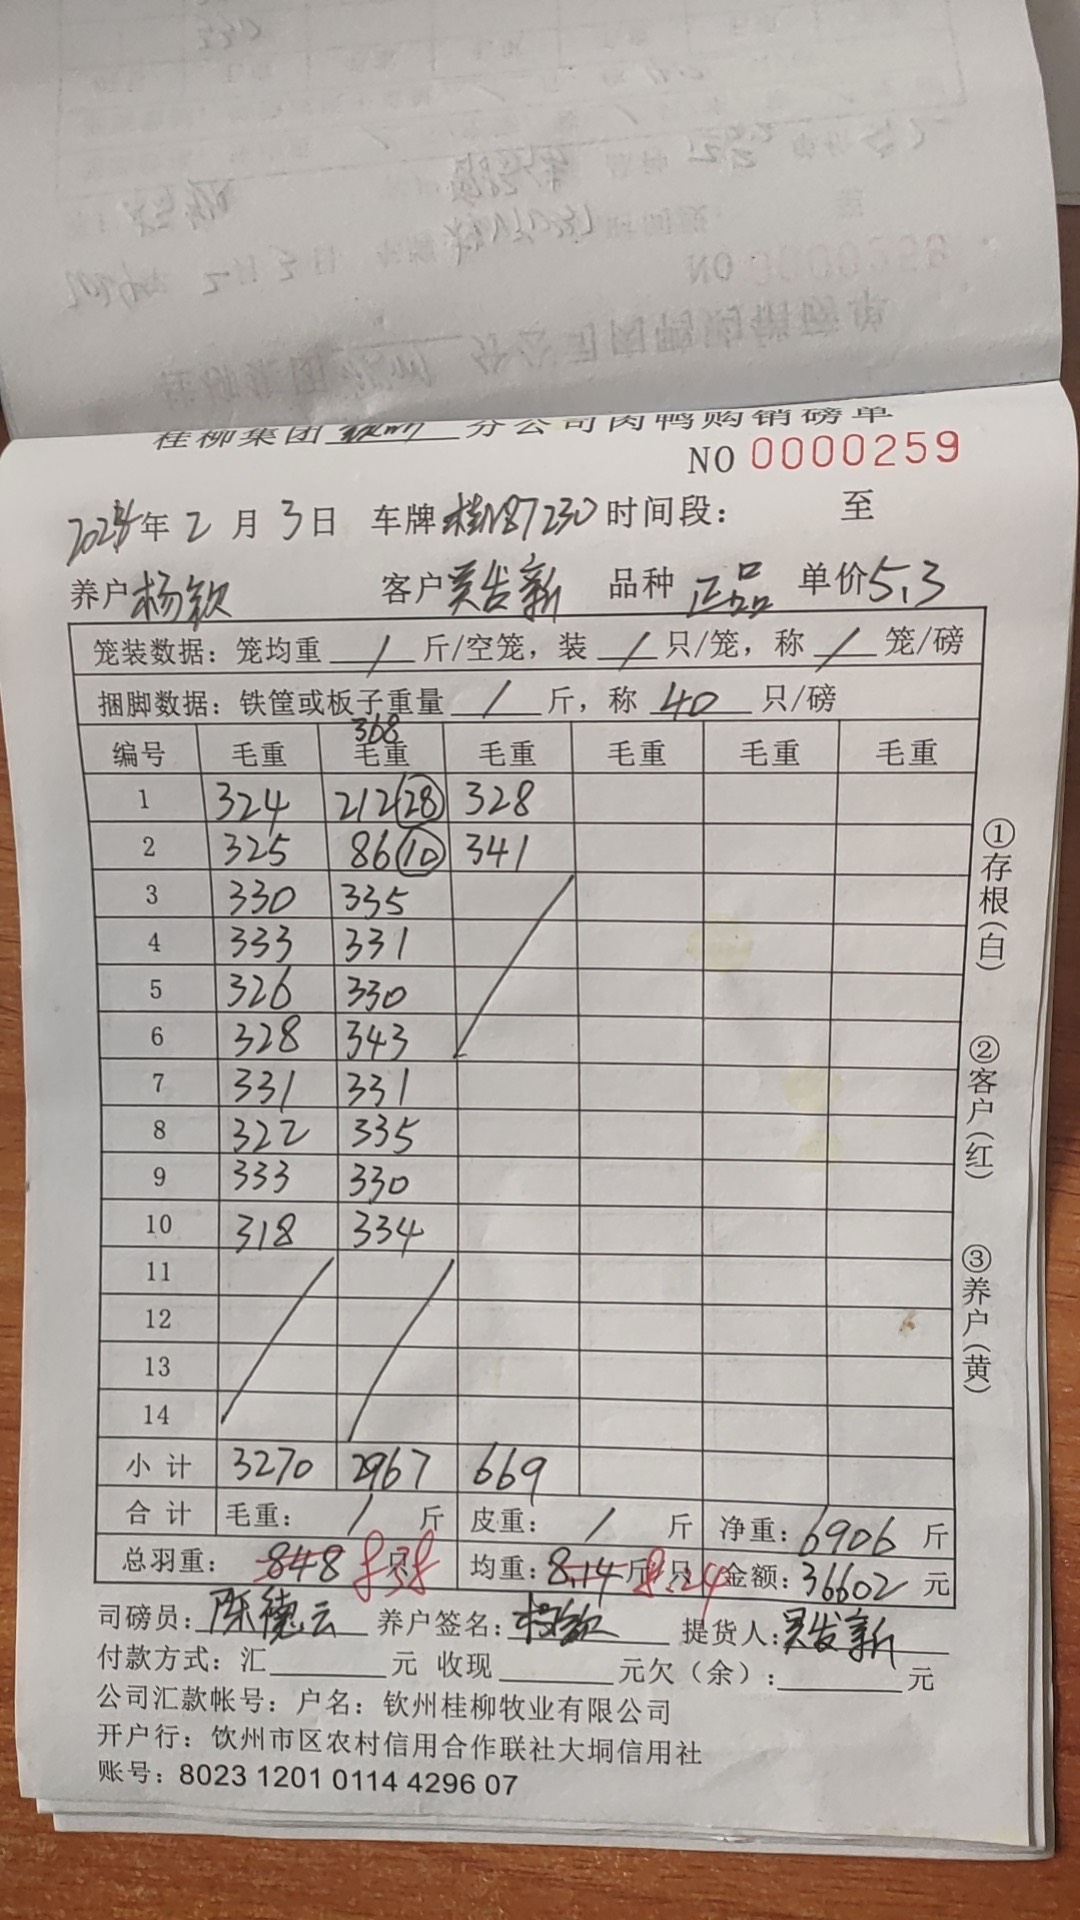 桂柳集团 分公司肉鸭购销磅单
NO 0000259
2024年 2 月 3日 车牌桂N87230时间段： 至
养户杨钦 客户吴发新 品种 正品 单价5.3
笼装数据：笼均重 / 斤/空笼，装 / 只/笼，称 / 笼/磅
捆脚数据：铁筐或板子重量 / 斤，称 40 只/磅
368
编号 毛重 毛重 毛重 毛重 毛重 毛重
1 324 212(28) 328
2 325 86(10) 341
3 330 335
4 333 331
5 326 330
6 328 343
7 331 331
8 322 335
9 333 330
10 318 334
11
12
13
14
小计 3270 2967 669
合计 毛重： / 斤 皮重： / 斤 净重：6906 斤
总羽重： 848 838 只 均重：8.14斤/只 8.24 金额：36602 元
司磅员：陈德云 养户签名：杨钦 提货人：吴发新
付款方式：汇 元 收现 元欠（余）： 元
公司汇款帐号：户名：钦州桂柳牧业有限公司
开户行：钦州市区农村信用合作联社大垌信用社
账号：8023 1201 0114 4296 07
①存根(白)
②客户(红)
③养户(黄)